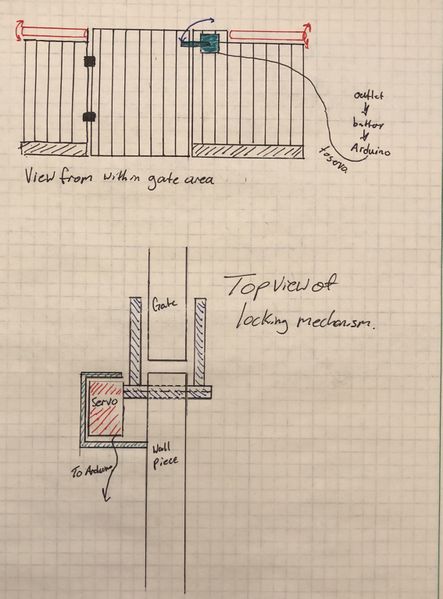 outlet
battery
Arduino
to servo
View from within gate area
Top view of
locking mechanism.
Gate
Servo
Wall
Piece
To Arduino